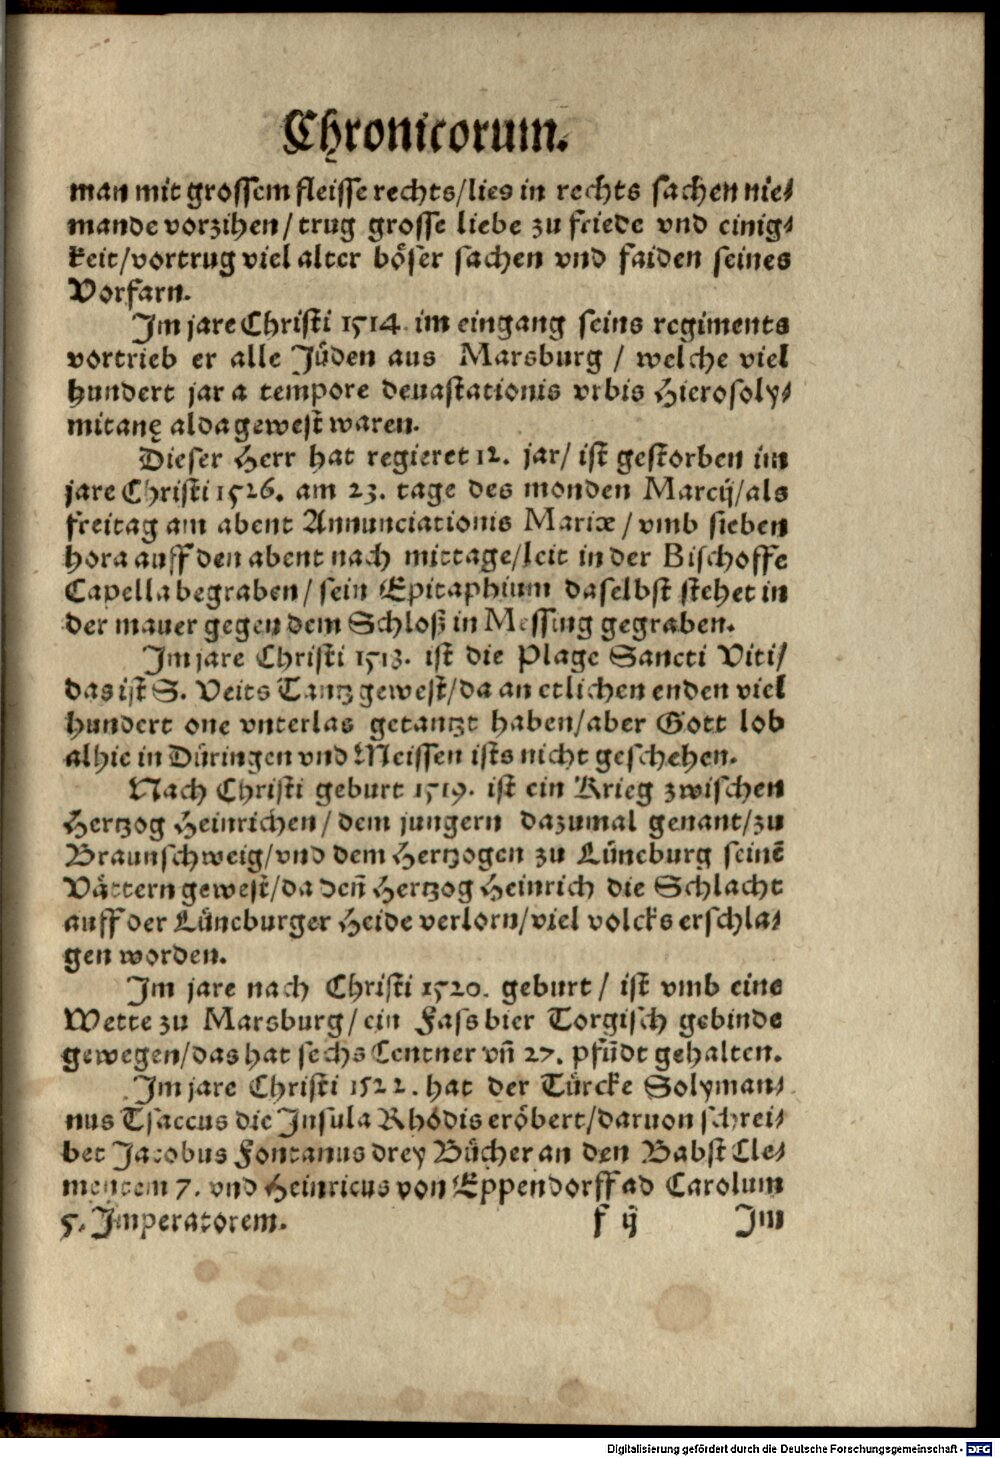 Chronicorum.
man mit grossem fleisse rechts/lies in rechts sachen nie⸗
mande vorzihen/ trug grosse liebe zu friede vnd einig⸗
keit/vortrug viel alter böser sachen vnd faiden seines
Vorfarn.
Im jare Christi 1514. im eingang seins regiments
vortrieb er alle Jüden aus Marsburg / welche viel
hundert jar a tempore deuastationis vrbis Hierosoly⸗
mitanę alda gewest waren.
Dieser Herr hat regieret 12. jar/ ist gestorben im
jare Christi 1526. am 23. tage des monden Marcij/als
freitag am abent Annunciationis Mariæ / vmb sieben
hora auff den abent nach mittage/leit in der Bischoffe
Capella begraben/ sein Epitaphium daselbst stehet in
der mauer gegen dem Schloß in Messing gegraben.
Im jare Christi 1513. ist die Plage Sancti Viti/
das ist S. Veits Tantz gewest/da an etlichen enden viel
hundert one vnterlas getantzt haben/aber Gott lob
alhie in Düringen vnd Meissen ists nicht geschehen.
Nach Christi geburt 1519. ist ein Krieg zwischen
Hertzog Heinrichen/ dem jungern dazumal genant/zu
Braunschweig/vnd dem Hertzogen zu Lüneburg seinē
Vättern gewest/da deñ Hertzog Heinrich die Schlacht
auff der Lüneburger Heide verlorn/viel volcks erschla⸗
gen worden.
Im jare nach Christi 1520. geburt/ ist vmb eine
Wette zu Marsburg/ ein Fass bier Torgisch gebinde
gewegen/das hat sechs Centner vñ 27. pfūdt gehalten.
Im jare Christi 1522. hat der Türcke Solyman⸗
nus Tsaccus die Insula Rhodis eröbert/daruon schrei⸗
bet Jacobus Fontanus drey Bücher an den Babst Cle⸗
mentem 7. vnd Heinricus von Eppendorff ad Carolum
5. Imperatorem. f ij Im
Digitalisierung gefördert durch die Deutsche Forschungsgemeinschaft - DFG